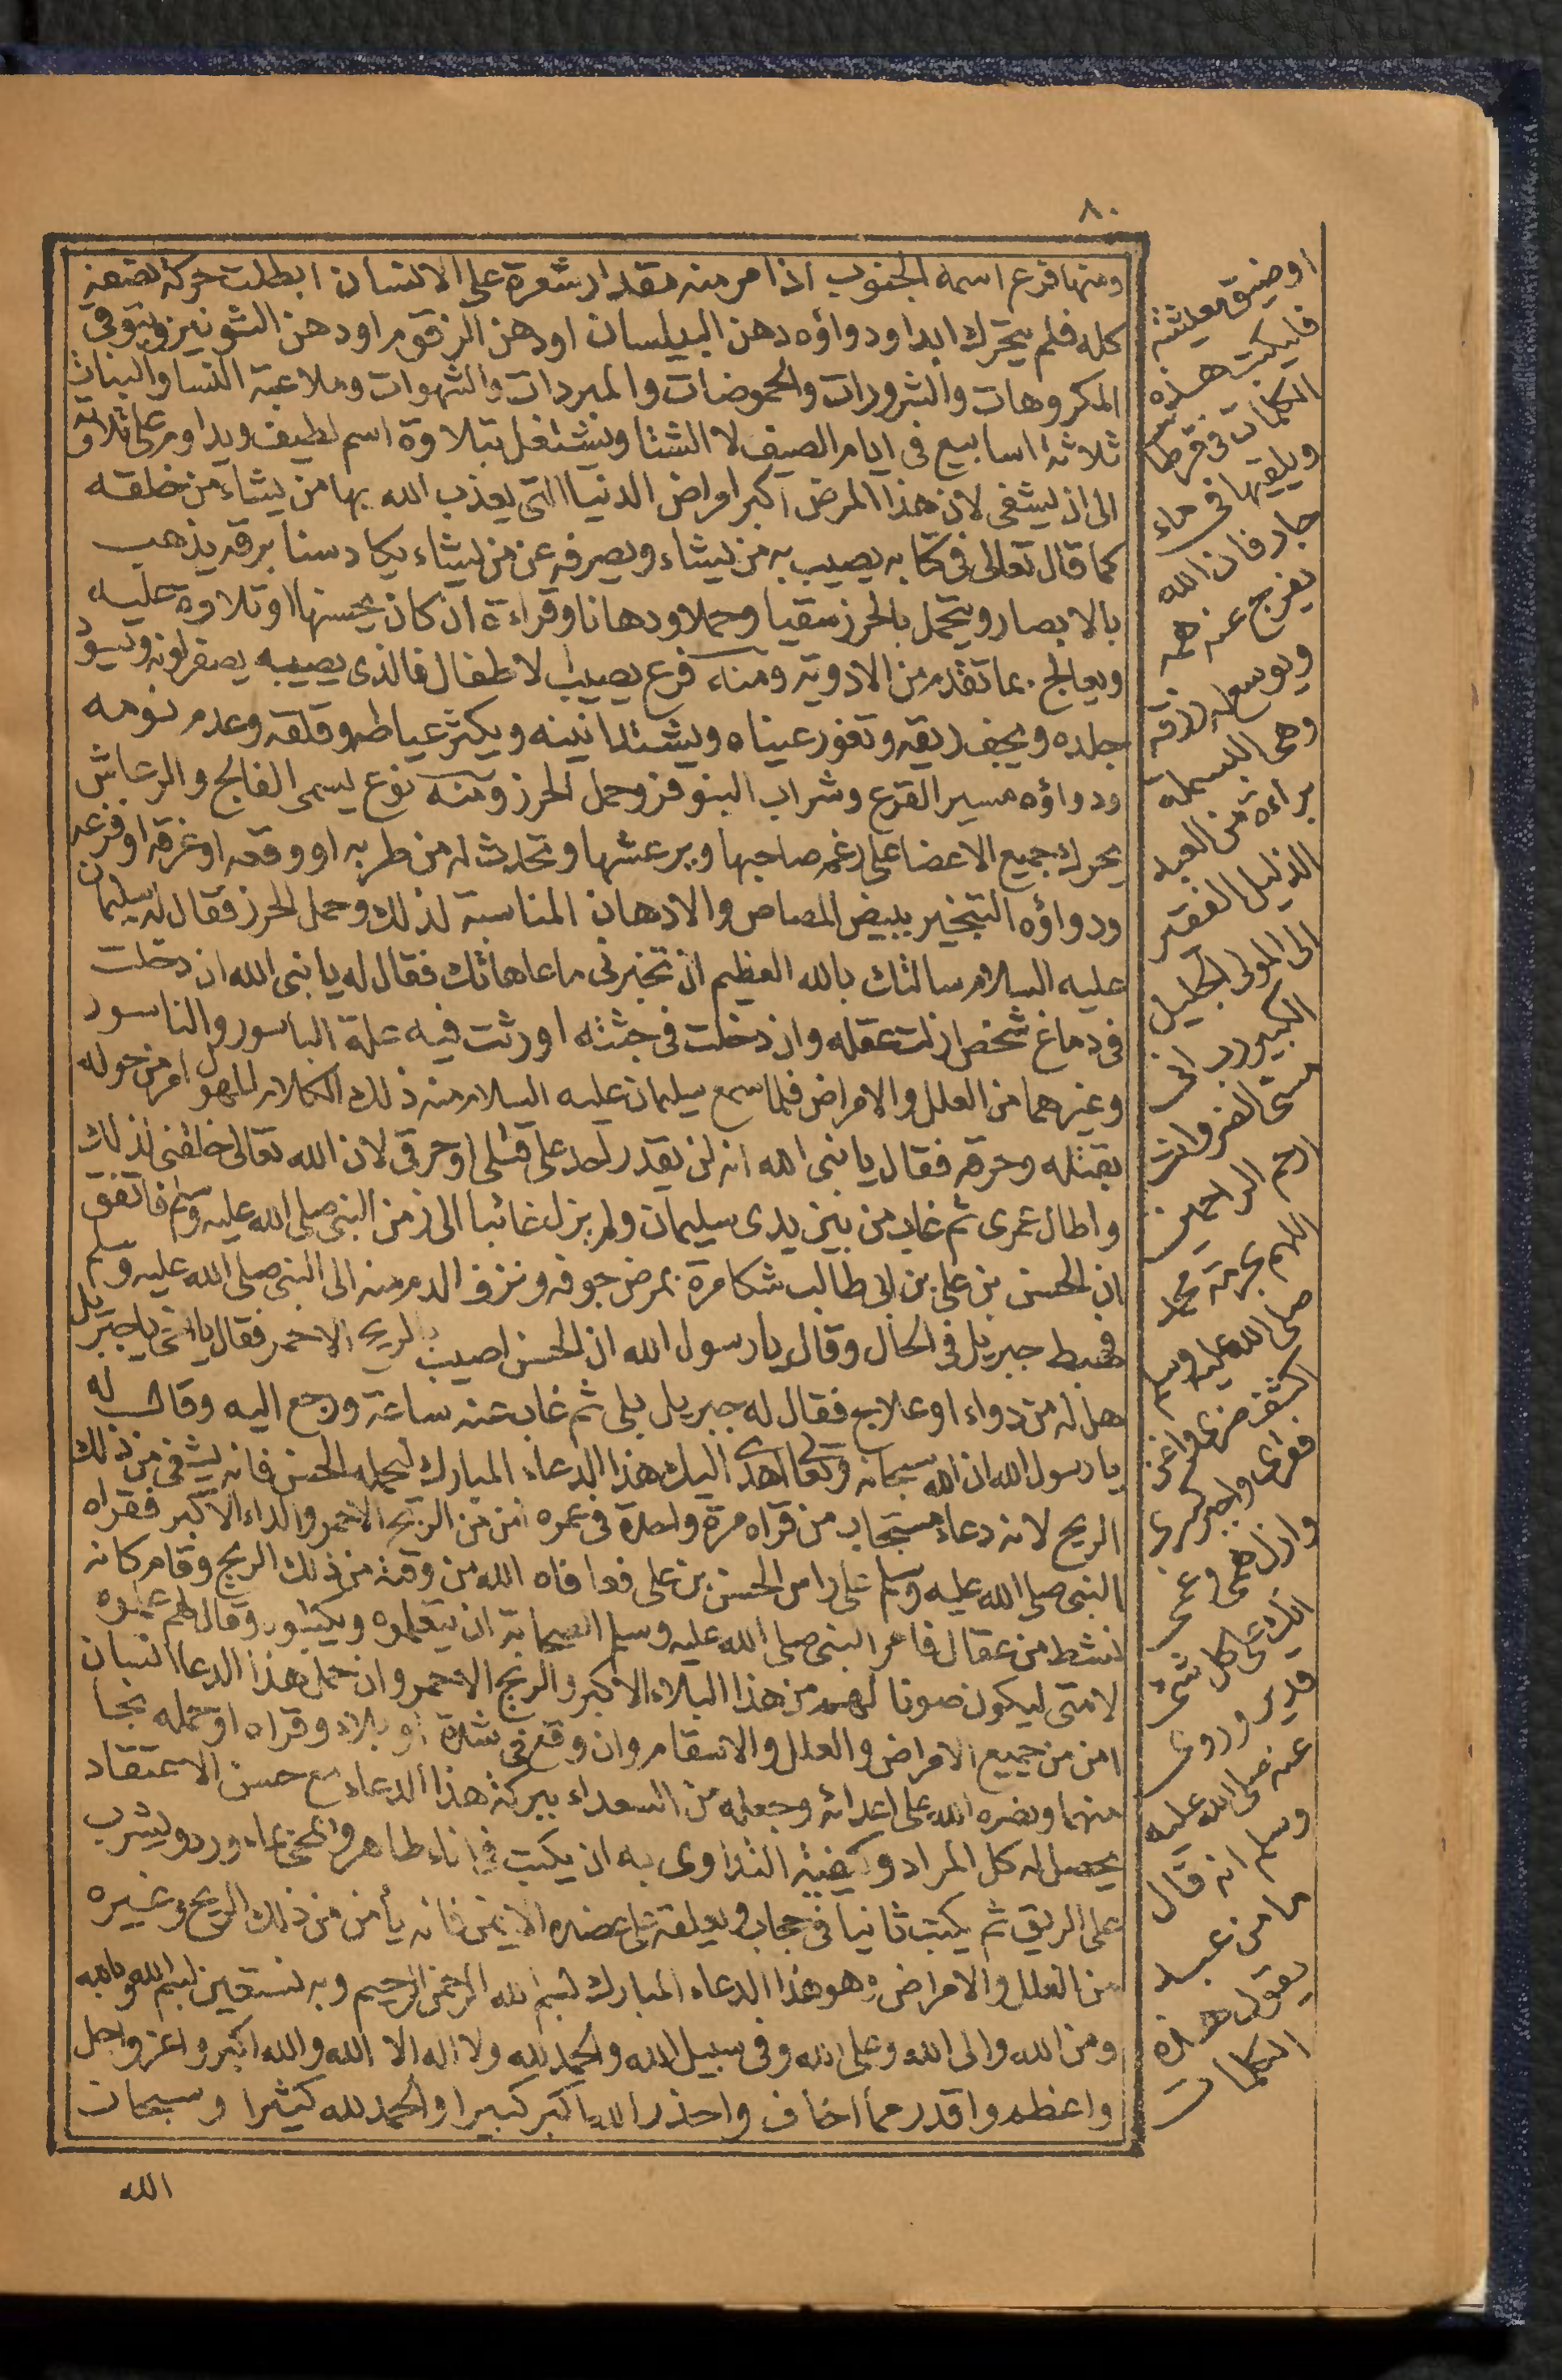 ٨٠
ومنها فرع اسمه الجنوب اذا مر منه مقدار شعرة على الانسان ابطلت حركة نصفه
كله فلم يتحرك ابدا ودواؤه دهن البيلسان او دهن الزقوم او دهن الشونيز ويتوقى
المكروهات والشرورات والحموضات والمبردات والشهوات وملاعبة النسا والبنات
ثلاثة اسابيع فى ايام الصيف لا الشتا ويشتغل بتلاوة اسم لطيف ويداوم على تلاوته
الى ان يشفى لان هذا المرض اكبر امراض الدنيا التى يعذب الله بها من يشاء من خلقه
كما قال تعالى فى كتابه يصيب به من يشاء ويصرفه عن من يشاء يكاد سنا برقه يذهب
بالابصار ويتحمل بالحرز سقيا وحملا ودهانا وقراءة ان كان يحسنها او تلاوة عليه
ويعالج بما تقدم من الادوية ومنه فرع يصيب لاطفال فالذى يصيبه يصفر لونه ويسود
جلده ويجف ريقه وتغور عيناه ويشتد انينه ويكثر عياطه وقلقه وعدم نومه
ودواؤه مسير القرع وشراب البنوفز وحمل الحرز ومنه نوع يسمى الفالج والرعاش
يحرك جميع الاعضا على رغم صاحبها ويرعشها وتحدث له من طربه او وقعه او غرقه او فزعه
ودواؤه التبخير ببيض المصاص والادهان المناسبة لذلك وحمل الحرز فقال له سليمان
عليه السلام سالتك بالله العظيم ان تخبرنى ما عاهاتك فقال له يا نبى الله ان دخلت
فى دماغ شخص ازلت عقله وان دخلت فى جثته اورثت فيه علة الباسور والناسور
وغيرهما من العلل والامراض فلما سمع سليمان عليه السلام منه ذلك الكلام المهول امر من حوله
بقتله وحرقه فقال يا نبى الله انه لن يقدر احد على قتلى او حرقى لان الله تعالى خلقنى لذلك
واطال عمرى ثم غاب من بين يدى سليمان ولم يزل غائبا الى زمن النبى صلى الله عليه وسلم فاتفق
ان الحسن بن على بن ابى طالب شكا مرة بمرض جوفه ونزف الدم منه الى النبى صلى الله عليه وسلم
فهبط جبريل فى الحال وقال يا رسول الله ان الحسن اصيب بالريح الاحمر فقال يا اخى يا جبريل
هل له من دواء او علاج فقال له جبريل بلى ثم غاب عنه ساعة ورجع اليه وقال له
يا رسول الله ان الله سبحانه وتعالى اهدى اليك هذا الدعاء المبارك ليحمله الحسن فانه يشفى من ذلك
الريح لانه دعاء مستجاب من قراه مرة واحدة فى عمره امن من الريح الاحمر والداء الاكبر فقراه
النبى صلى الله عليه وسلم على راس الحسن بن على فعافاه الله من وقته من ذلك الريح وقام كانه
نشط من عقال فامر النبى صلى الله عليه وسلم الصحابة ان يتعلموه ويكتبوه وقال لهم علموه
لامتى ليكون صونا لهم من هذا البلاء الاكبر والريح الاحمر وان حمل هذا الدعا انسان
امن من جميع الامراض والعلل والاسقام وان وقع فى شدة او بلاء وقراه او حمله نجا
منهما ونصره الله على اعدائه وجعله من السعداء ببركة هذا الدعاء مع حسن الاعتقاد
يحصل له كل المراد وكيفية التداوى به ان يكتب فى اناء طاهر ويمحى بماء ورد ويشرب
على الريق ثم يكتب ثانيا فى حجاب ويعلقه على عضده الايمن فانه يأمن من ذلك الريح وغيره
من العلل والامراض وهو هذا الدعاء المبارك بسم الله الرحمن الرحيم وبه نستعين بسم الله وبالله
ومن الله والى الله وعلى الله وفى سبيل الله والحمد لله ولا اله الا الله والله اكبر واعز واجل
واعظم واقدر مما اخاف واحذر الله اكبر كبيرا والحمد لله كثيرا وسبحان
الله
او ضيق معيشته
فليكتب هذه
الكلمات فى قرطاس
ويلقيها فى ماء
جار فان الله
يفرج عنه همه
ويوسع رزقه
وهى البسملة
براءة من العبد
الذليل الفقير
الى المولى الجليل
الكبير رب انى
مسنى الضر وانت
ارحم الراحمين
اللهم بحرمة محمد
صلى الله عليه وسلم
اكشف ضرى واغن
فقرى واجبر كسرى
وازل همى وغمى
انك على كل شئ
قدير وروى
عنه صلى الله عليه
وسلم انه قال
ما من عبد
يقول هذه
الكلمات